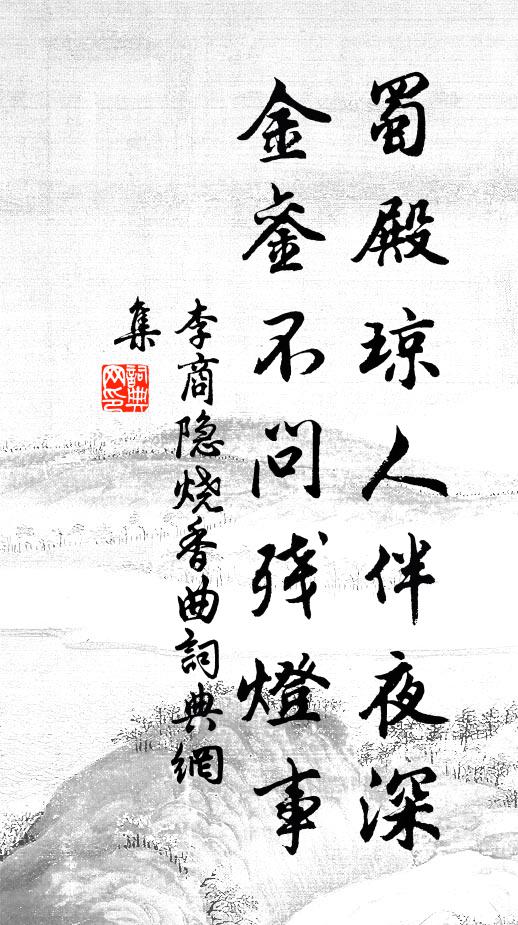 蜀殿琼人伴夜深
金銮不问残燈事
李商隐烧香曲詞典網
集
詞典网印